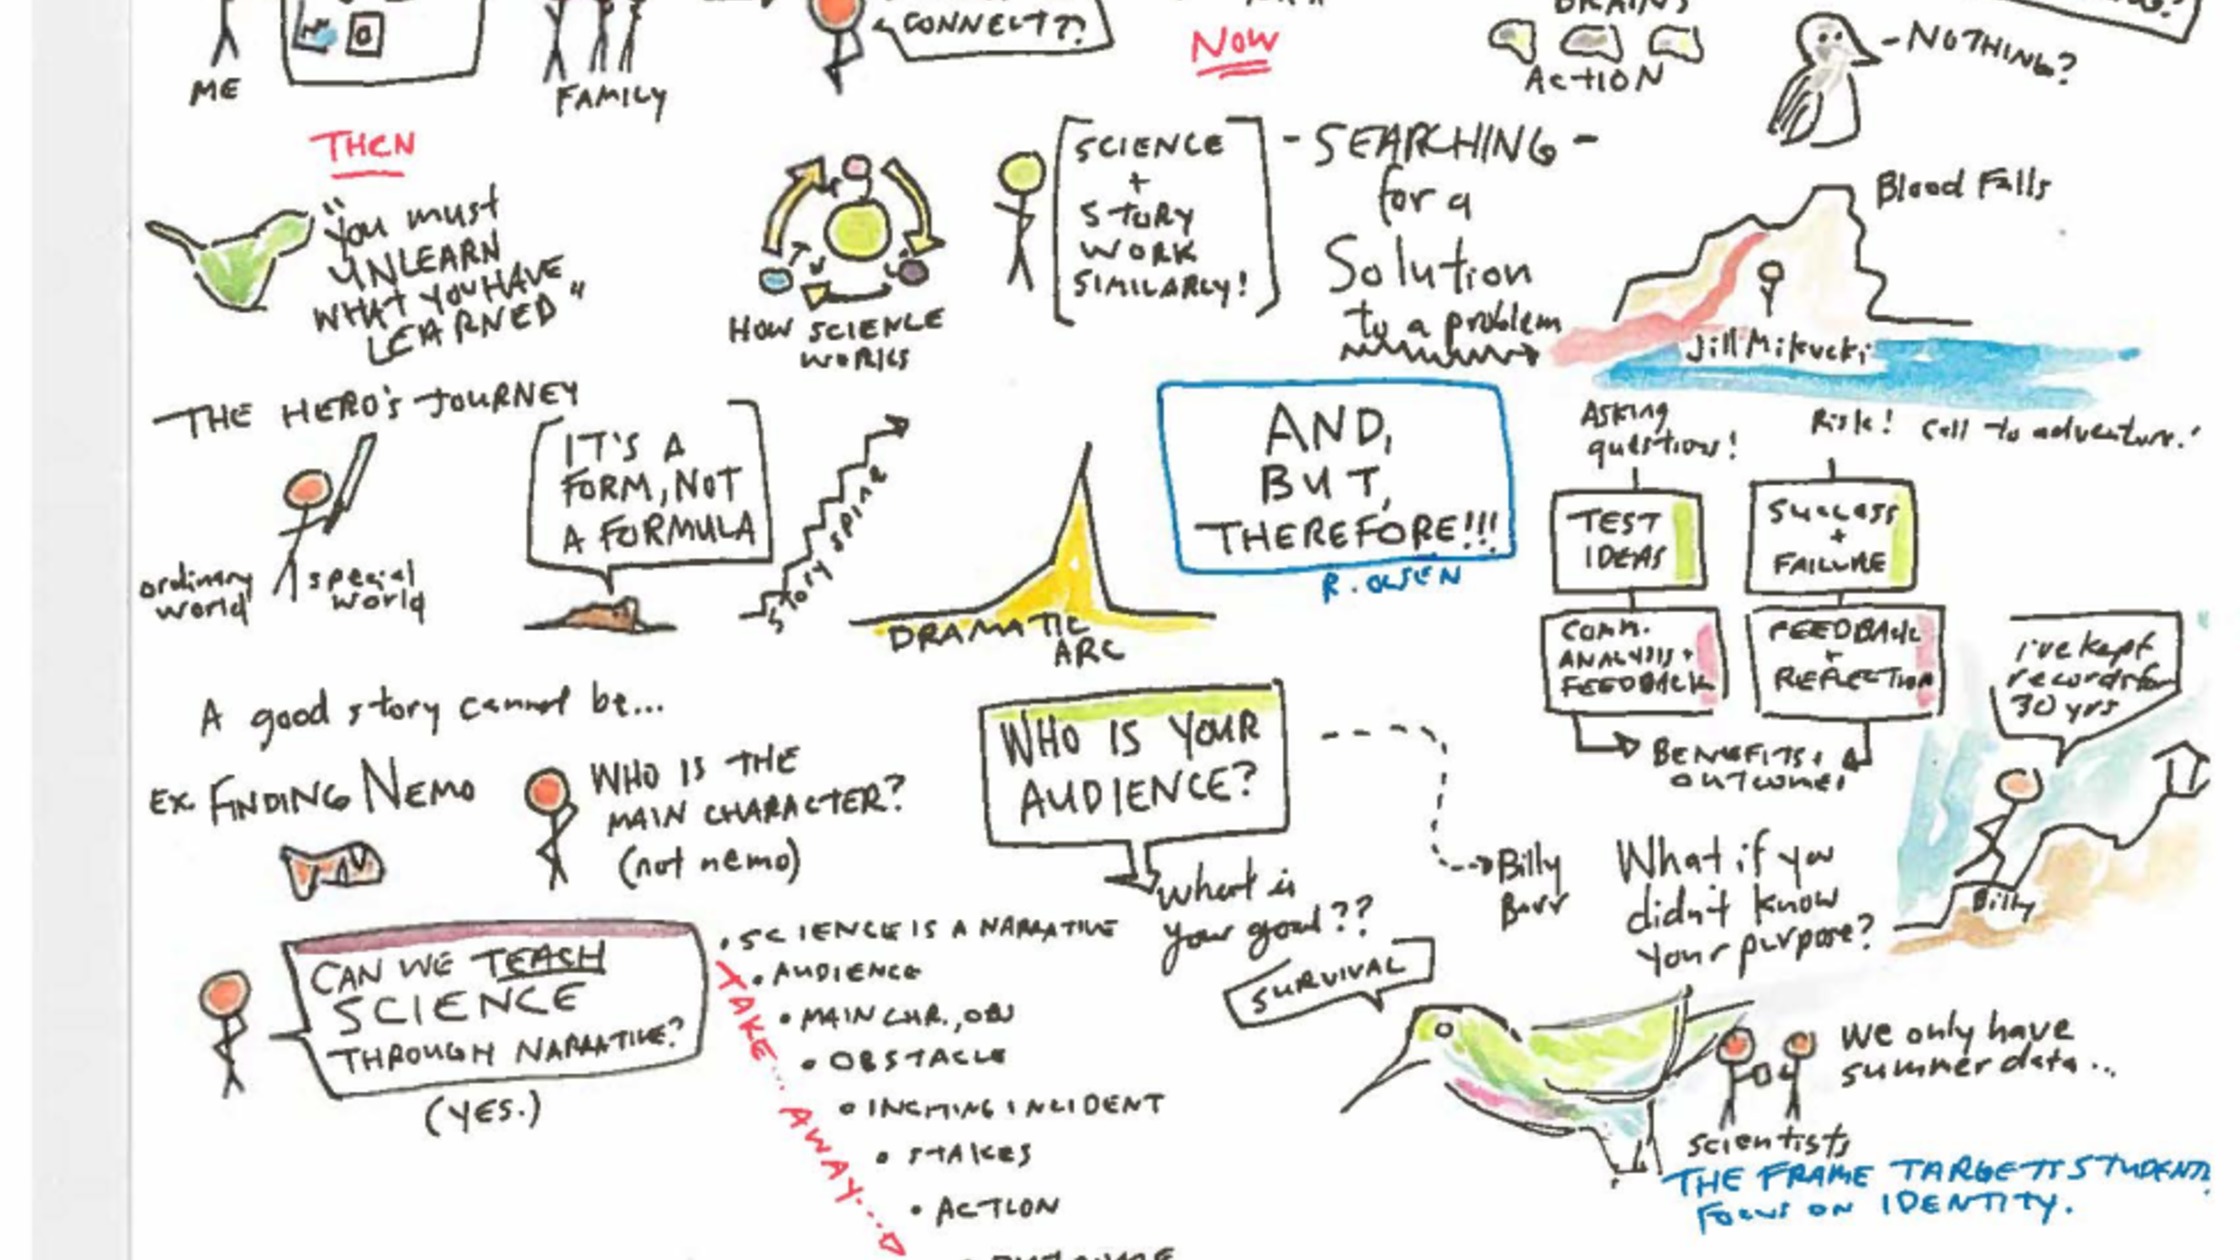 CONNECT??
NOW
ACTION
-NOTHING?
ME
FAMILY
THEN
"You must
UNLEARN
WHAT YOU HAVE
LEARNED"
HOW SCIENCE
WORKS
SCIENCE
+
STORY
WORK
SIMILARLY!
- SEARCHING -
for a
Solution
to a problem
Blood Falls
Jill Mikucki
THE HERO'S JOURNEY
ordinary
world
special
world
IT'S A
FORM, NOT
A FORMULA
story spine
DRAMATIC
ARC
AND,
BUT,
THEREFORE!!!
R. OLSEN
Asking
questions!
Risk! Call to adventure!
TEST
IDEAS
SUCCESS
+
FAILURE
COMM.
ANALYSIS +
FEEDBACK
FEEDBACK
+
REFLECTION
BENEFITS +
OUTCOMES
i've kept
records for
30 yrs
Billy
A good story cannot be...
EX. FINDING NEMO
WHO IS THE
MAIN CHARACTER?
(not nemo)
WHO IS YOUR
AUDIENCE?
what is
your goal??
Billy
Barr
What if you
didn't know
your purpose?
CAN WE TEACH
SCIENCE
THROUGH NARRATIVE?
(YES.)
TAKE... AWAY....
• SCIENCE IS A NARRATIVE
• AUDIENCE
• MAIN CHR., OBJ
• OBSTACLE
• INCITING INCIDENT
• STAKES
• ACTION
SURVIVAL
We only have
summer data...
scientists
THE FRAME TARGETS STUDENTS
FOCUS ON IDENTITY.